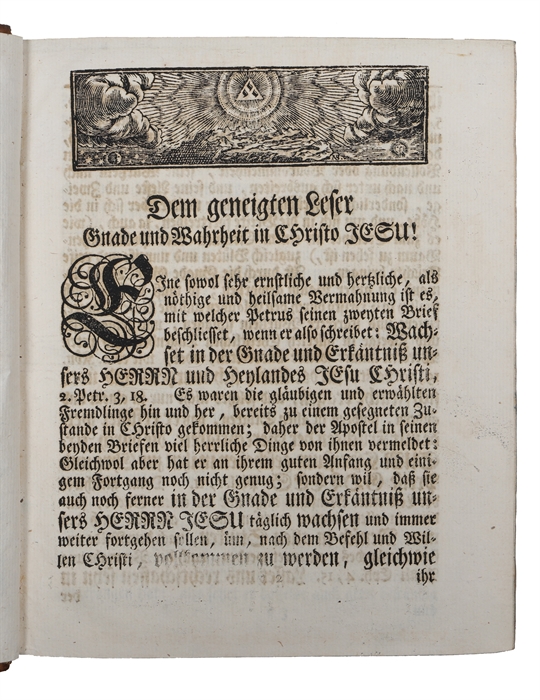 Dem geneigten Leser
Gnade und Wahrheit in CHristo JESU!
EIne sowol sehr ernstliche und hertzliche, als
nöthige und heilsame Vermahnung ist es,
mit welcher Petrus seinen zweyten Brief
beschliesset, wenn er also schreibet: Wach-
set in der Gnade und Erkäntniß un-
sers HERRN und Heylandes JEsu CHristi,
2. Petr. 3, 18. Es waren die gläubigen und erwählten
Fremdlinge hin und her, bereits zu einem gesegneten Zu-
stande in CHristo gekommen; daher der Apostel in seinen
beyden Briefen viel herrliche Dinge von ihnen vermeldet:
Gleichwol aber hat er an ihrem guten Anfang und eini-
gem Fortgang noch nicht genug; sondern wil, daß sie
auch noch ferner in der Gnade und Erkäntniß un-
sers HERRN JESU täglich wachsen und immer
weiter fortgehen sollen, um, nach dem Befehl und Wil-
len CHristi, vollkommen zu werden, gleichwie
2 ihr